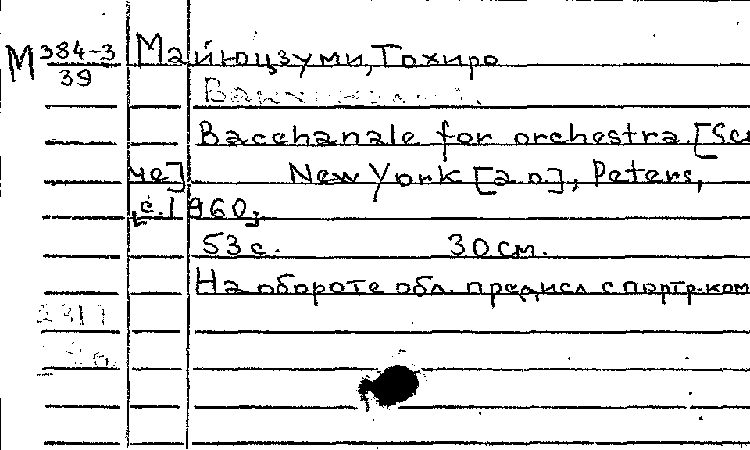 М 384-3/39 Майюцзуми, Тохиро
Bacchanale for orchestra. [Sco
re] New York [a.o], Peters,
[c. 1960].
53 с. 30 см.
На обороте обл. предисл с портр. ком
2311